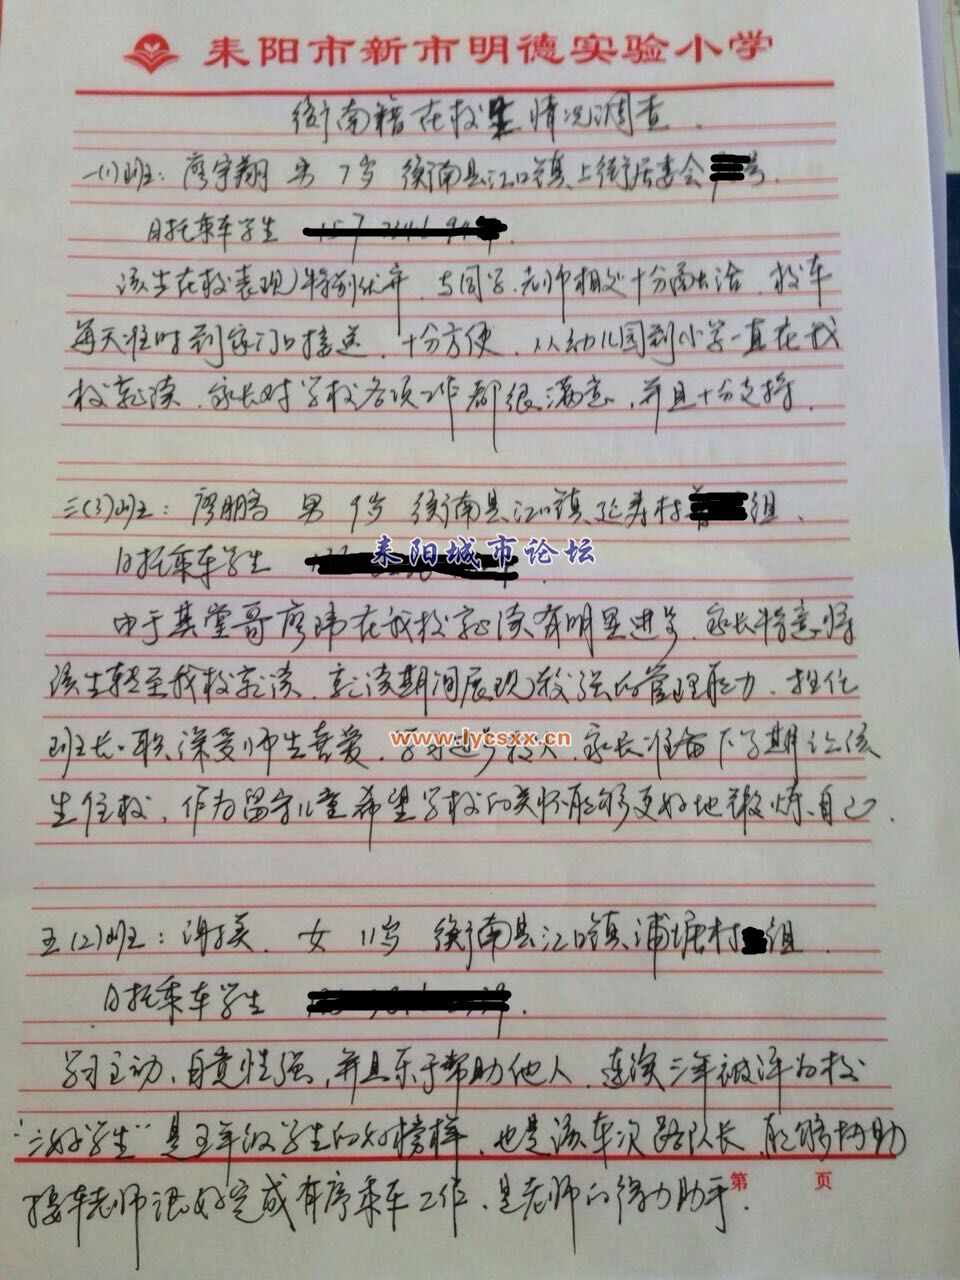 耒阳市新市明德实验小学
衡南籍在校生情况调查.
一(1)班: 廖宇翔 男 7岁 衡南县江口镇上街居委会 号.
日托乘车学生
该生在校表现特别优异,与同学.老师相处十分融洽.校车
每天准时到家门口接送,十分方便,从幼儿园到小学一直在我
校就读.家长对学校各项工作都很满意,并且十分支持.
三(3)班: 廖鹏 男 9岁 衡南县江口镇延寿村 组.
耒阳城市论坛
日托乘车学生
由于其堂哥廖玮在我校就读有明显进步,家长特意将
该生转至我校就读.就读期间展现较强的管理能力,担任
班长一职,深受师生喜爱.学习进步较大,家长准备下学期让该
www.lycsxx.cn
生住校,作为留守儿童希望学校的关怀能够更好地锻炼自己.
五(2)班: 谢美. 女 11岁 衡南县江口镇浦塘村 组.
日托乘车学生
学习主动,自觉性强,并且乐于帮助他人.连续三年被评为校
"三好学生"是五年级学生的好榜样.也是该车次路队长,能够协助
接车老师很好完成有序乘车工作.是老师的得力助手.
第 页